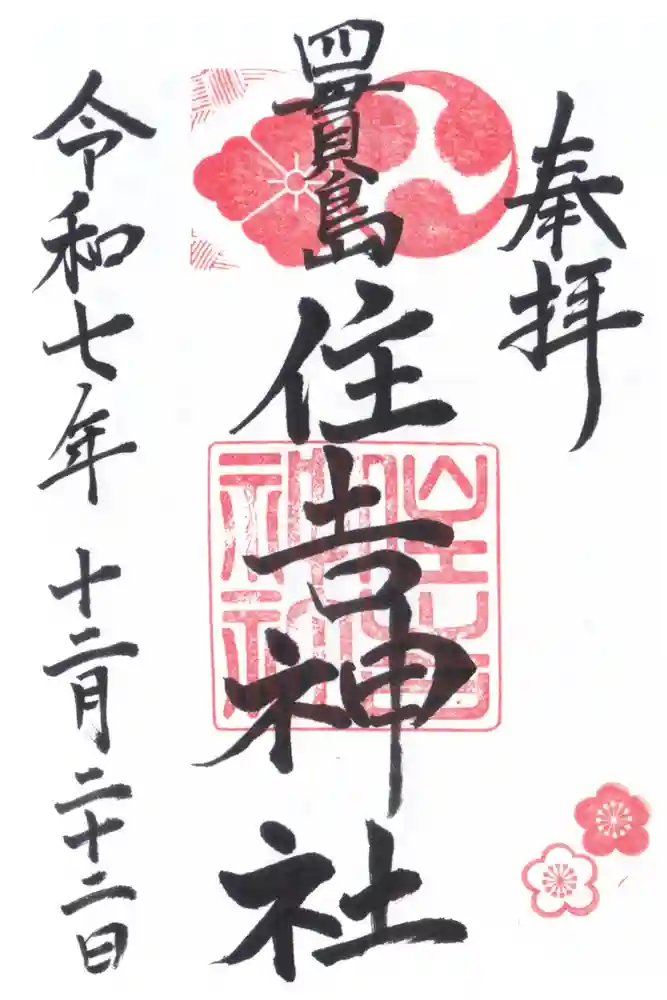 奉拝
四貫島
住吉神社
住吉神社
令和七年 十二月二十二日